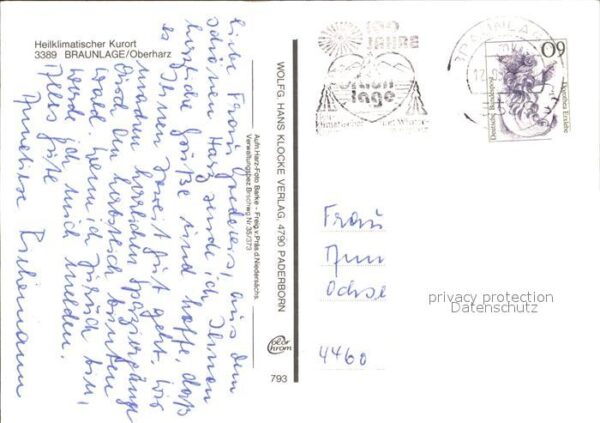 Heilklimatischer Kurort
3389 BRAUNLAGE/Oberharz
Liebe Frau aus dem
schönen Harz sende ich Ihnen
herzliche Grüße und hoffe, daß
es Ihnen soweit gut geht. Wir
machen herrlichen Spaziergänge
durch den herbstlich bunten
Wald. Wenn ich zurück bin,
werde ich mich melden.
Alles Gute
WOLFG. HANS KLOCKE VERLAG, 4790 PADERBORN
Aufn. Harz-Foto Barke - Freig. v. Präs. d. Niedersächs.
Verwaltungsbez. Brschwg Nr. 35/373
color
chrom
793
100
JAHRE
Braun
lage
60
Deutsche Bundespost
Dorothea Erxleben
Frau
Ochse
4460
privacy protection
Datenschutz